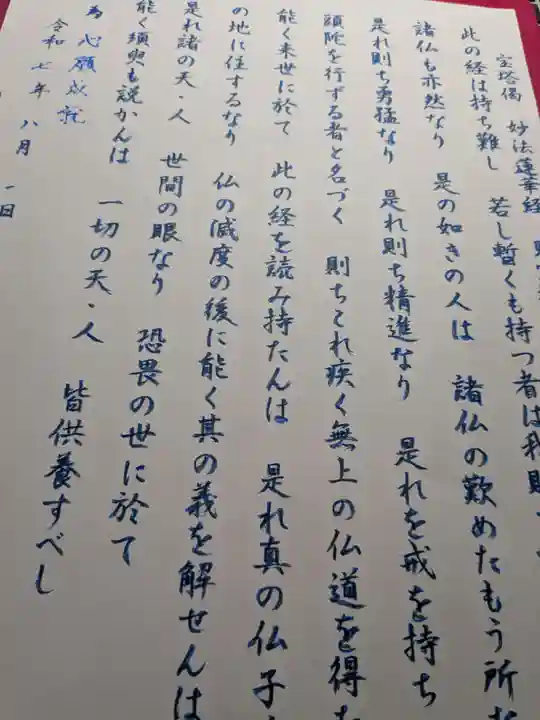 宝塔偈　妙法蓮華経
此の経は持ち難し　若し暫くも持つ者は我即
諸仏も亦然なり　是の如きの人は　諸仏の歎めたもう所
是れ則ち勇猛なり　是れ則ち精進なり　是れを戒を持ち
頭陀を行ずる者と名づく　則ちこれ疾く無上の仏道を得
能く来世に於て　此の経を読み持たんは　是れ真の仏子
の地に住するなり　仏の滅度の後に能く其の義を解せんは
是れ諸の天・人　世間の眼なり　恐畏の世に於て
能く須臾も説かんは　一切の天・人　皆供養すべし
為 心願成就
令和七年　八月　一日